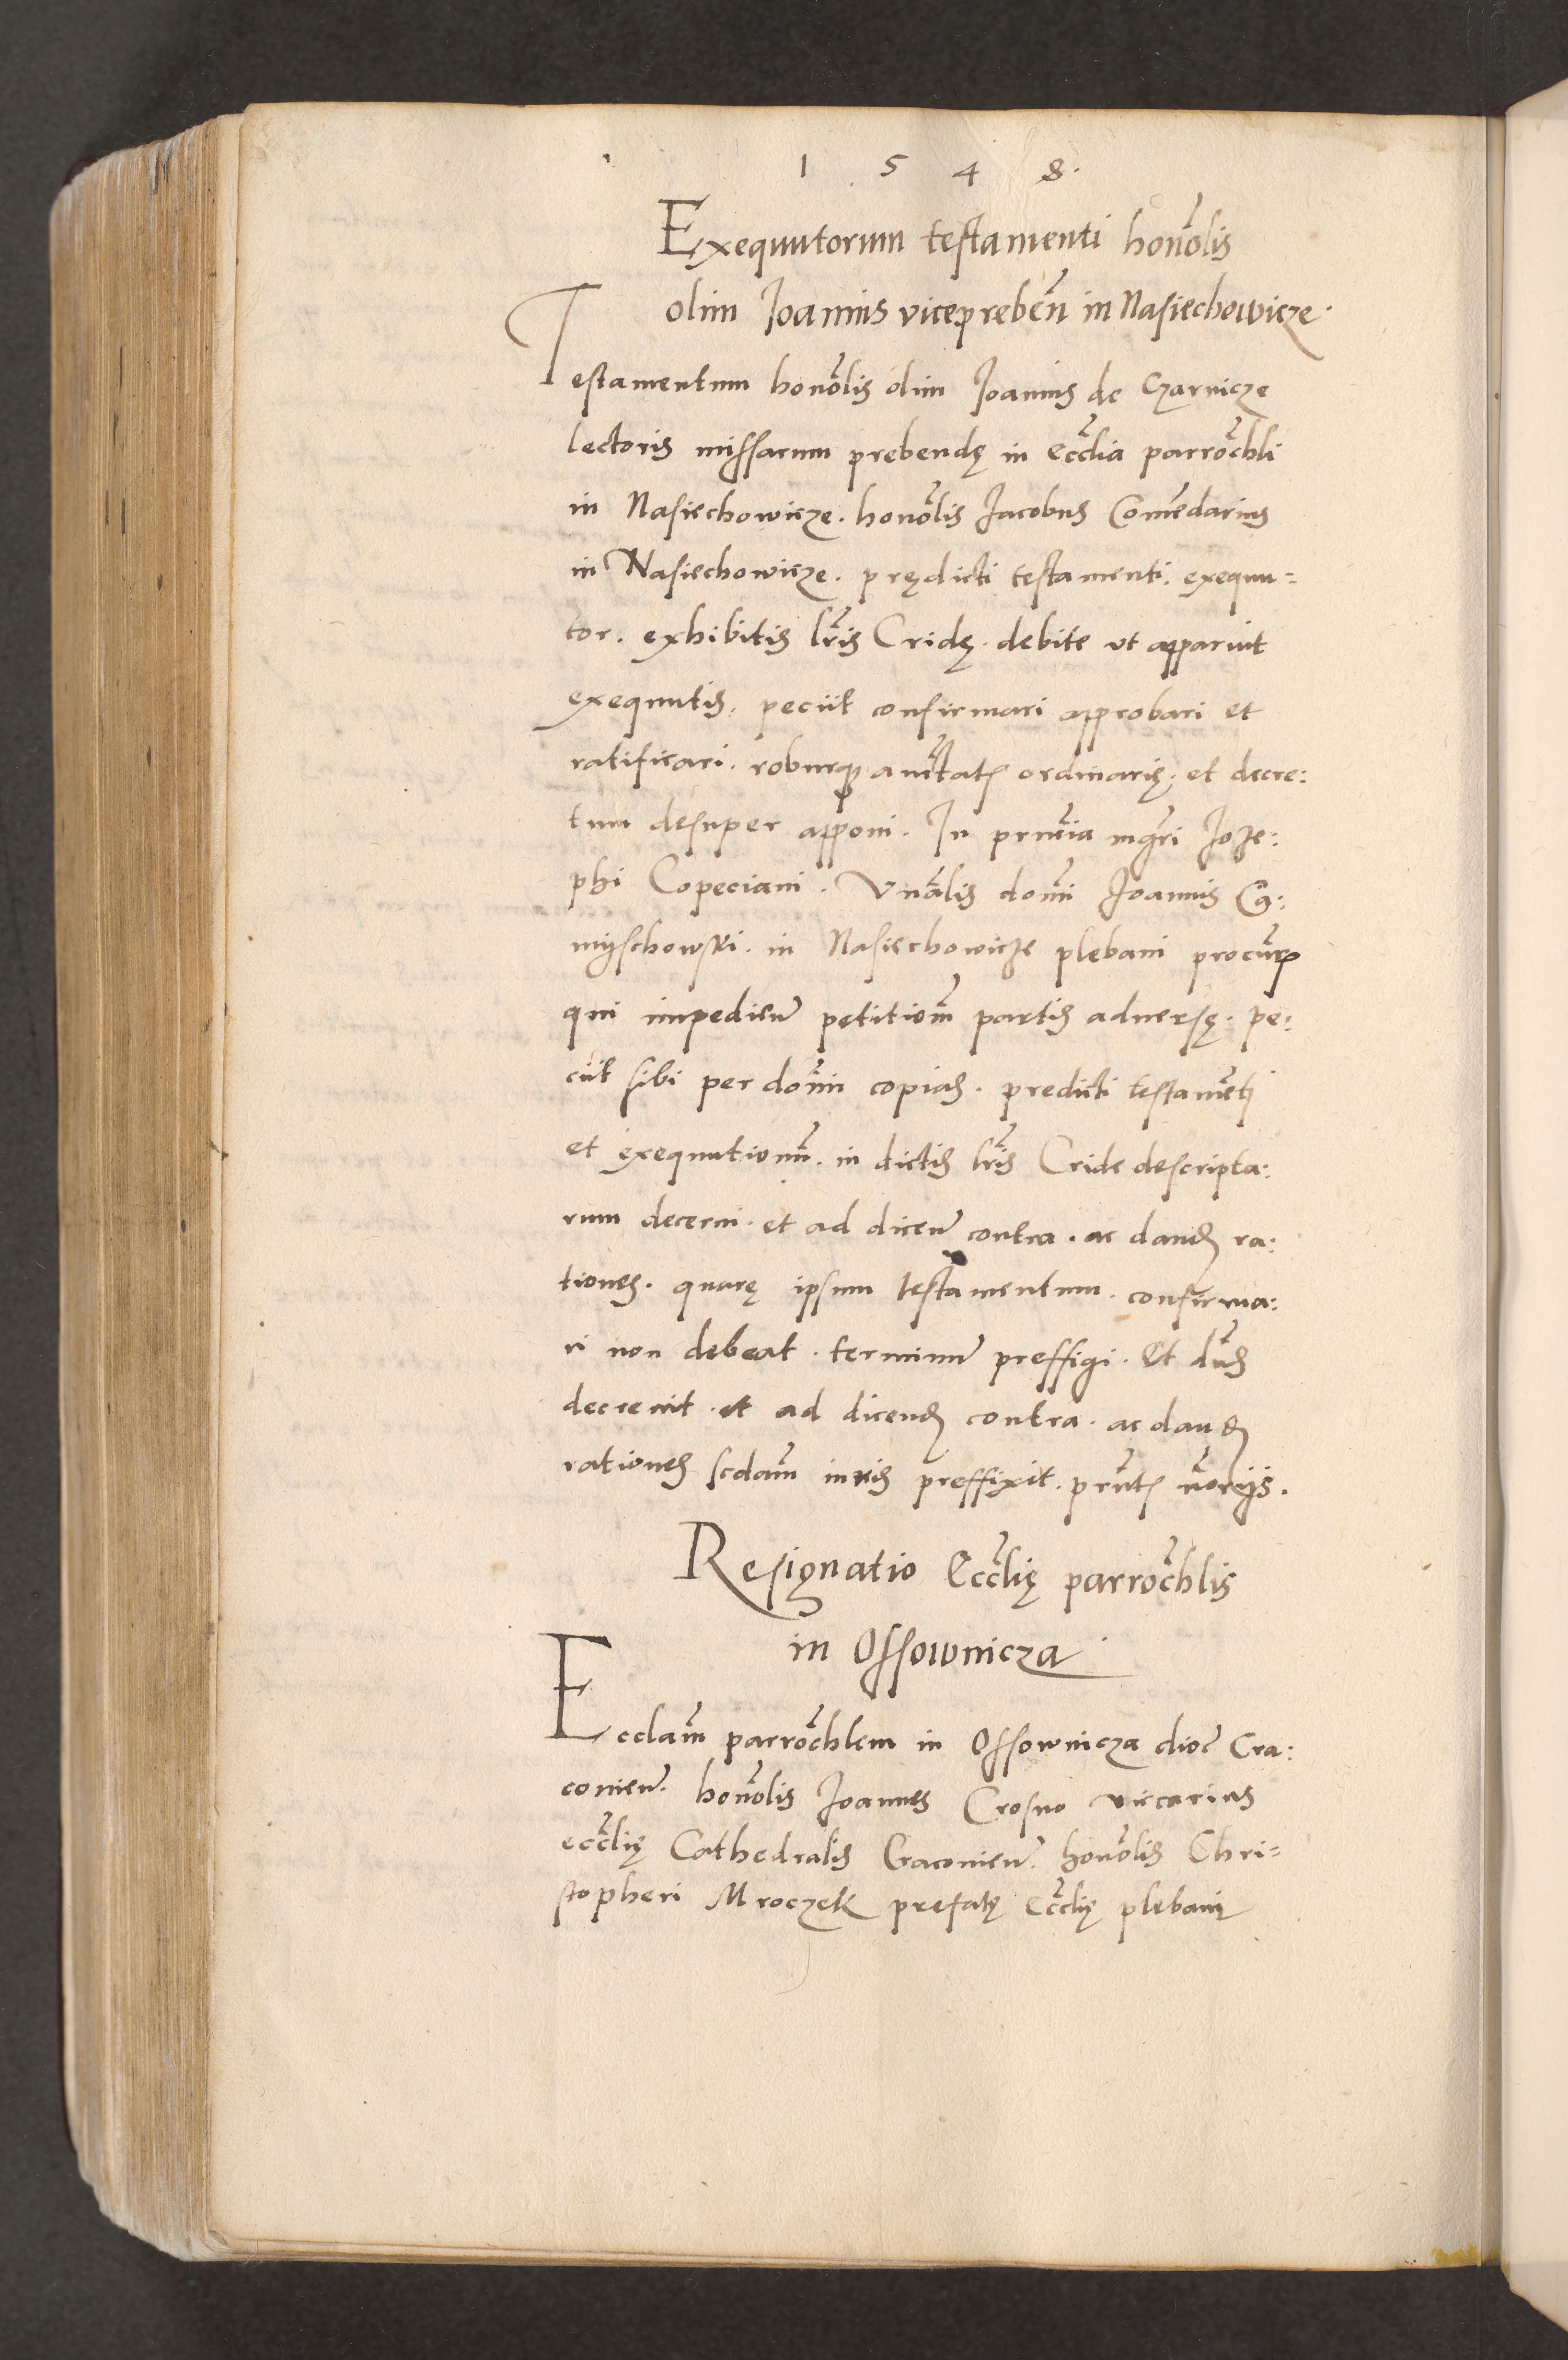 1 5 4 8.
Exequutorum testamenti honolis
olim Joannis viceprebenn in Nasiechowicze.
Testamentum honolis olim Joannis de Czarnicze
lectoris missarum prebendę in eccłia parrochli
in Nasiechowicze. honolis Jacobus Comedarius
in Nasiechowicze. prędicti testamenti. exequu=
tor. exhibitis lris Cridę. debite ut apparuit
exequutis. peciit confirmari approbari et
ratificari. roburq auctatis ordinarię. et decre:
tum desuper apponi. In prncia mgri Joze:
phi Copeciani. Vnalis domi Joannis Ca:
myschowski. in Nasiechowicze plebani procuris
qui impedien petitiom partis aduersę. pe:
ciit sibi per domi copias. predicti testamti
et exequutionu. in dictis lris Cride descripta:
rum decerni. et ad dicen contra. ac dand ra:
tiones. quarę ipsum testamentum. confirma:
ri non debeat. terminum preffigi. Et dns
decreuit. et ad dicend contra. ac dand
rationes scdam iuris preffixit. prntis noriis.
Resignatio Eccłię parrochlis
in Ossownicza
Ecclam parrochlem in Ossownicza dioc Cra:
couien. honolis Joannes Crosno vicarius
eccłię Cathedralis Cracouien. honolis Chri=
stopheri Mroczek prefatę Eccłię plebani